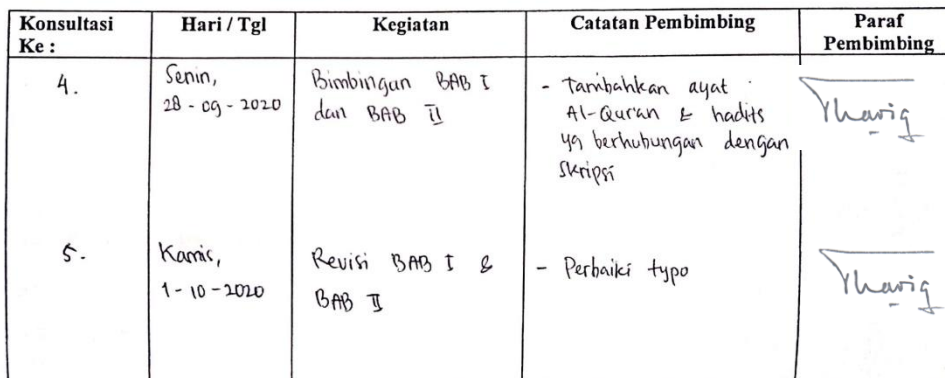 Konsultasi Ke :
Hari / Tgl
Kegiatan
Catatan Pembimbing
Paraf Pembimbing
4.
Senin,
28 - 09 - 2020
Bimbingan BAB I
dan BAB II
- Tambahkan ayat
Al-Qur'an & hadits
yg berhubungan dengan
Skripsi
Thariq
5.
Kamis,
1 - 10 - 2020
Revisi BAB I &
BAB II
- Perbaiki typo
Thariq